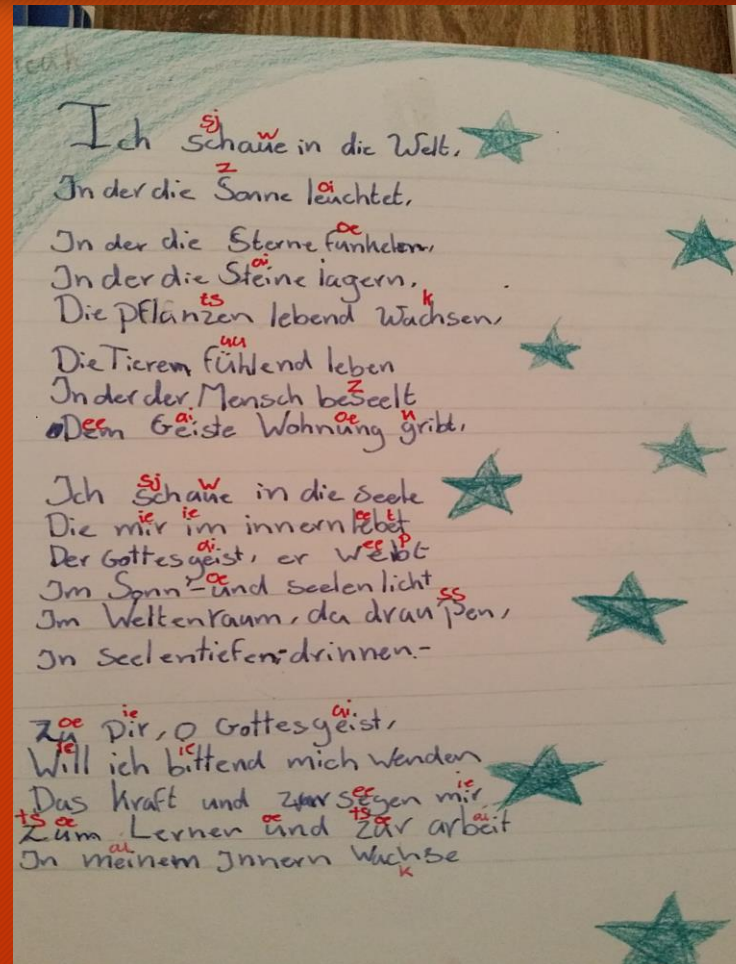 Ich schaue in die Welt,
In der die Sonne leuchtet,
In der die Sterne funkelen,
In der die Steine lagern,
Die pflanzen lebend Wachsen,
Die Tierem fühlend leben
In der der Mensch beseelt
Dem Geiste Wohnung gribt,
Ich schaue in die Seele
Die mir im innern lebet
Der Gottesgeist, er webt
Im Sonn'-und seelenlicht
Im Weltenraum, da draußen,
In Seelentiefen-drinnen.-
Zu Dir, O Gottesgeist,
Will ich bittend mich Wenden
Das Kraft und segen mir
Zum Lernen und zur arbeit
In meinem Innern Wachse